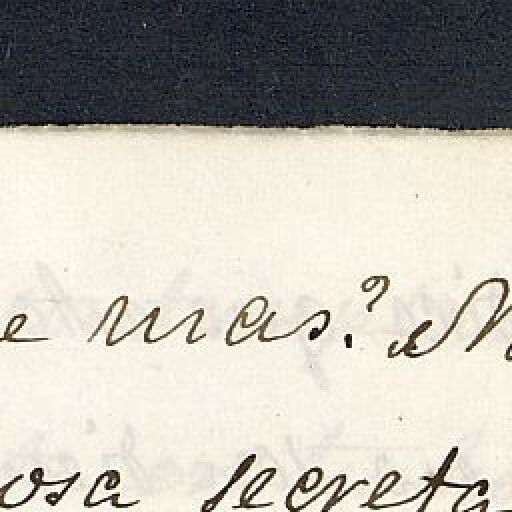 e mas.? M
osa secreta